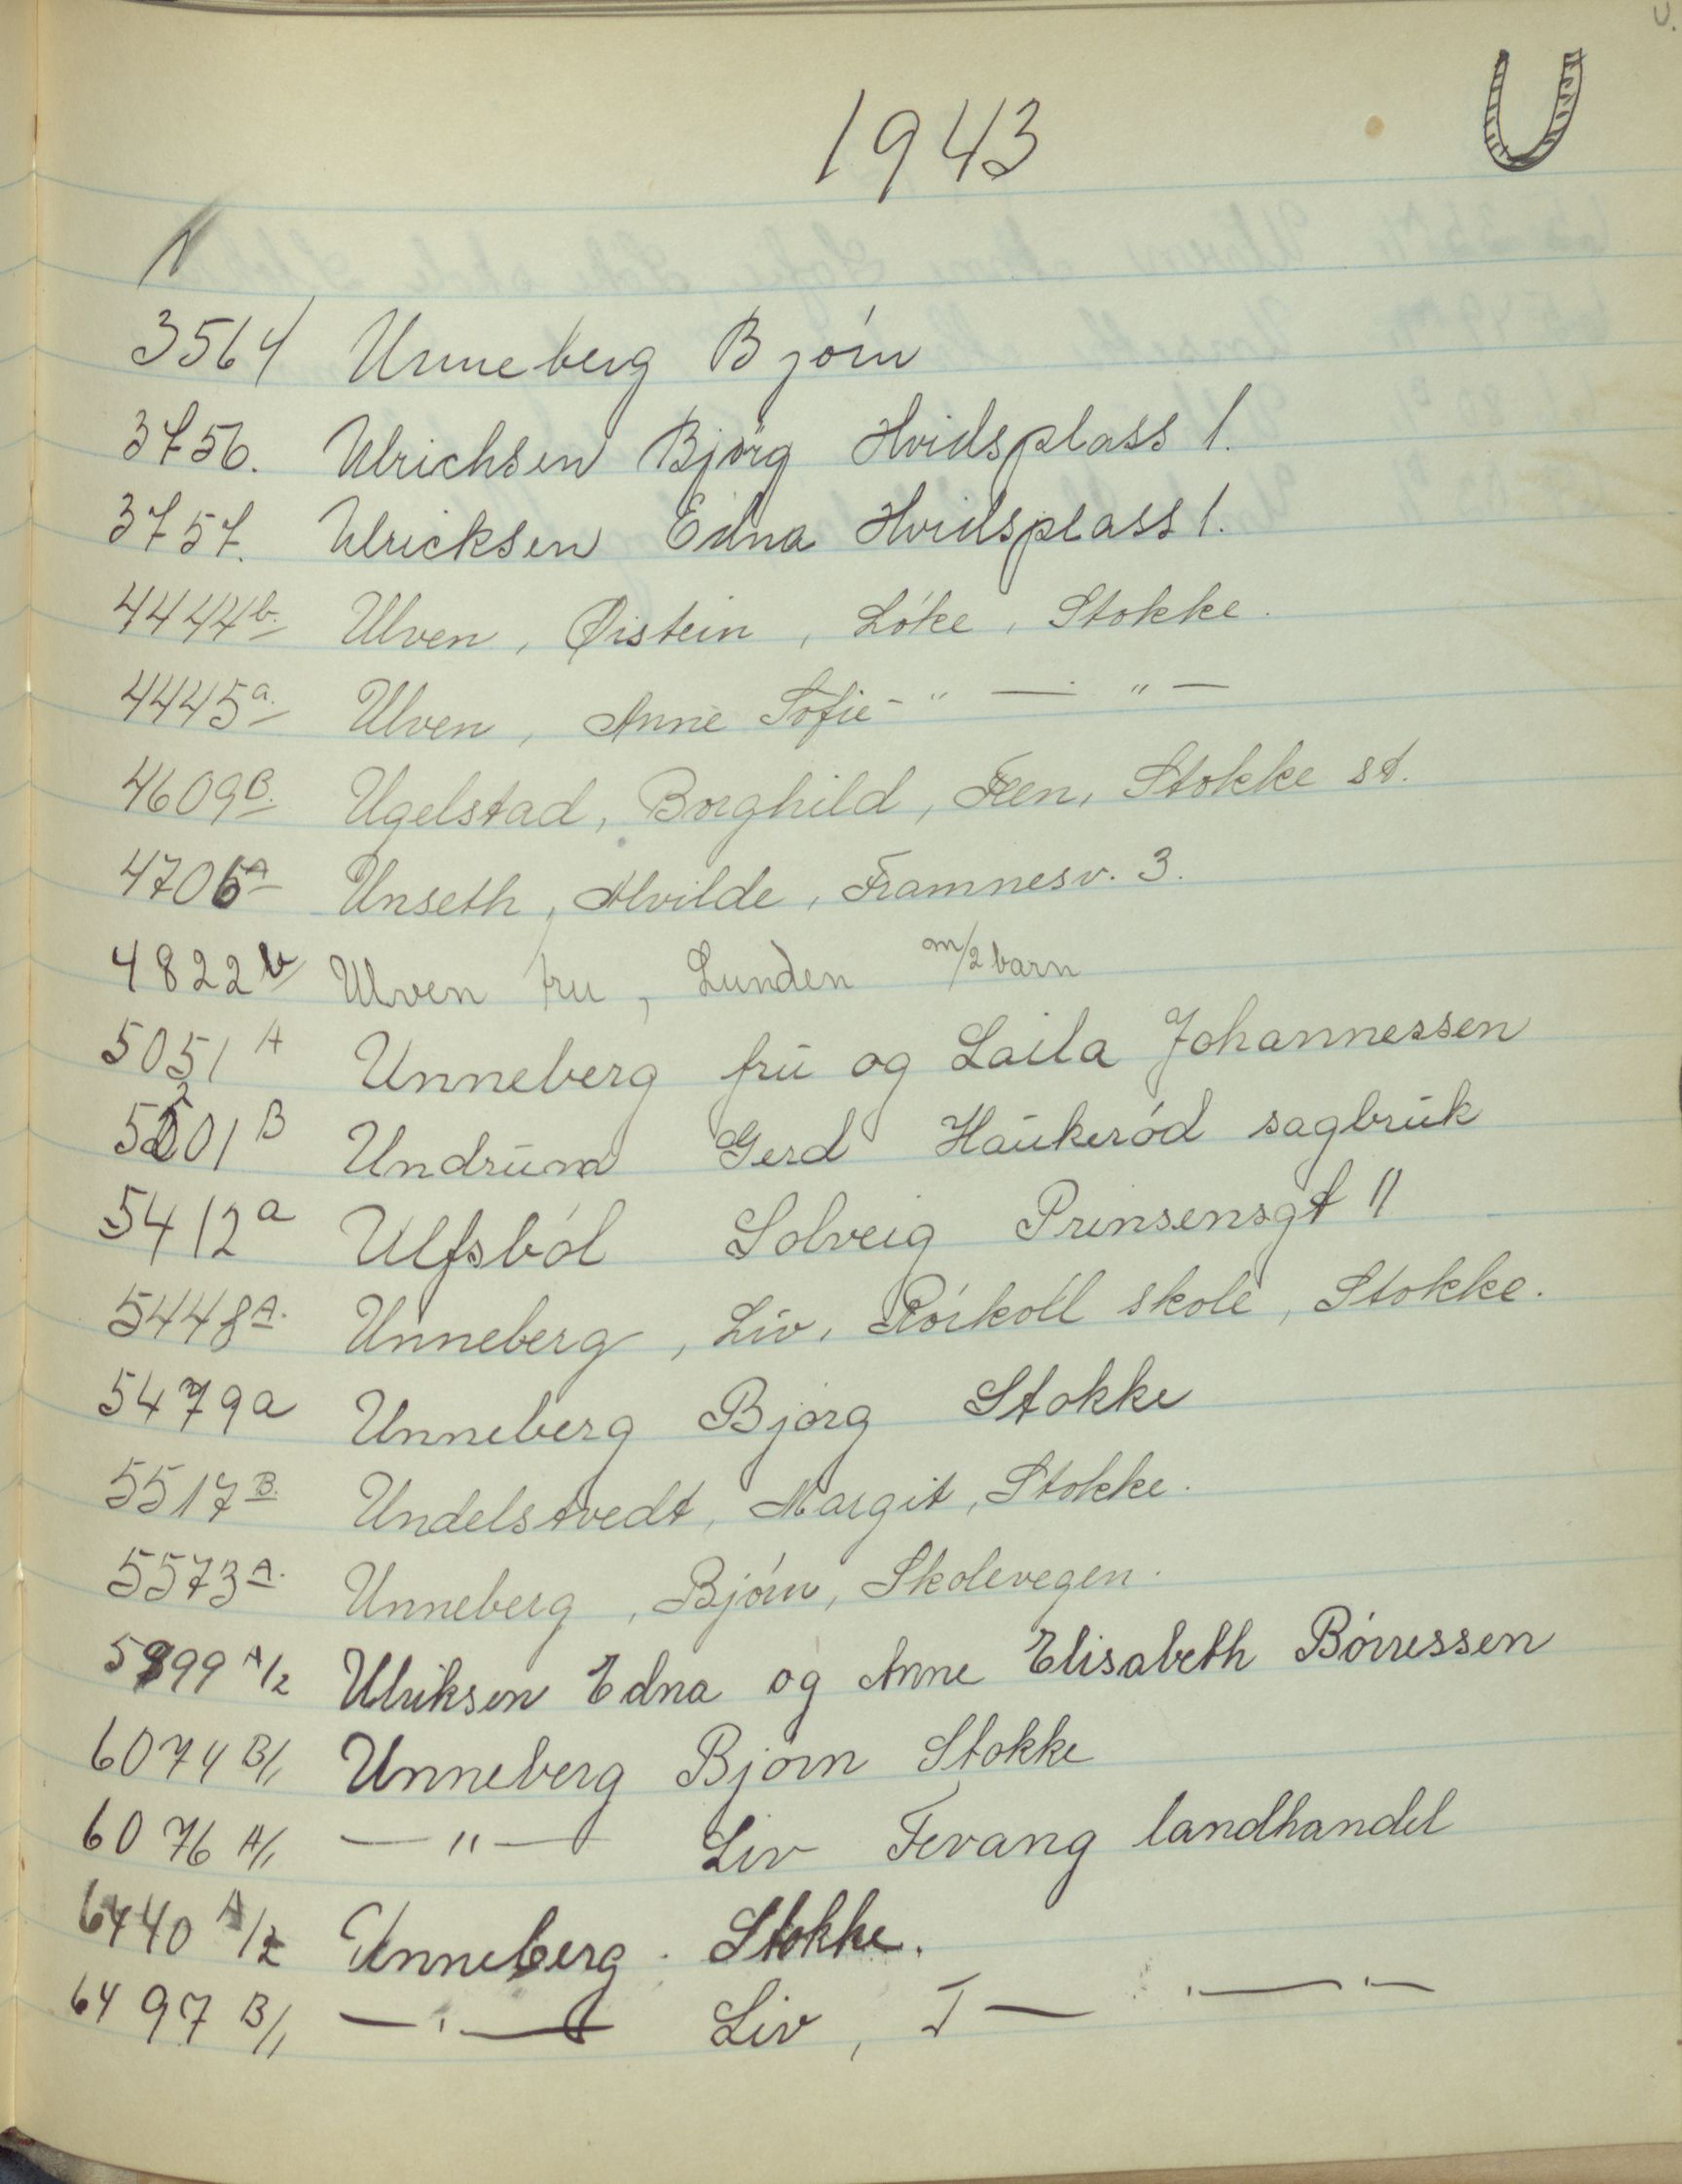 U.
U
1943
3564 Unneberg Bjórn
3756. Ulrichsen Bjórg Hvidsplass 1.
3757. Ulricksen Edna Hvidsplass 1.
4444b. Ulven, Øistein, Lóke, Stokke.
4445a. Ulven, Anne Sofie - " — " —
4609B. Ugelstad, Borghild, Feen, Stokke st.
4706A Unseth, Alvilde, Framnesv. 3.
4822b Ulven fru, Lunden m/2 barn
5051 A Unneberg frū og Laila Johannessen
5201 B Undrūm Gerd Haūkeród sagbrūk
5412a Ulfsból Solveig Prinsensgt 11
5448A. Unneberg, Liv, Rórkoll skole, Stokke.
5479a Unneberg Bjorg Stokke
5517B. Undelstvedt, Margit, Stokke.
5573A. Unneberg, Bjórn, Skolevegen.
5999 A/2 Ulriksen Edna og Anne Elisabeth Bórressen
6074 B/1 Unneberg Bjorn Stokke
6076 A/1 — " — Liv Fevang landhandel
6440 A/2 Unneberg. Stokke.
6497 B/1 — " — Liv, F — " — " —